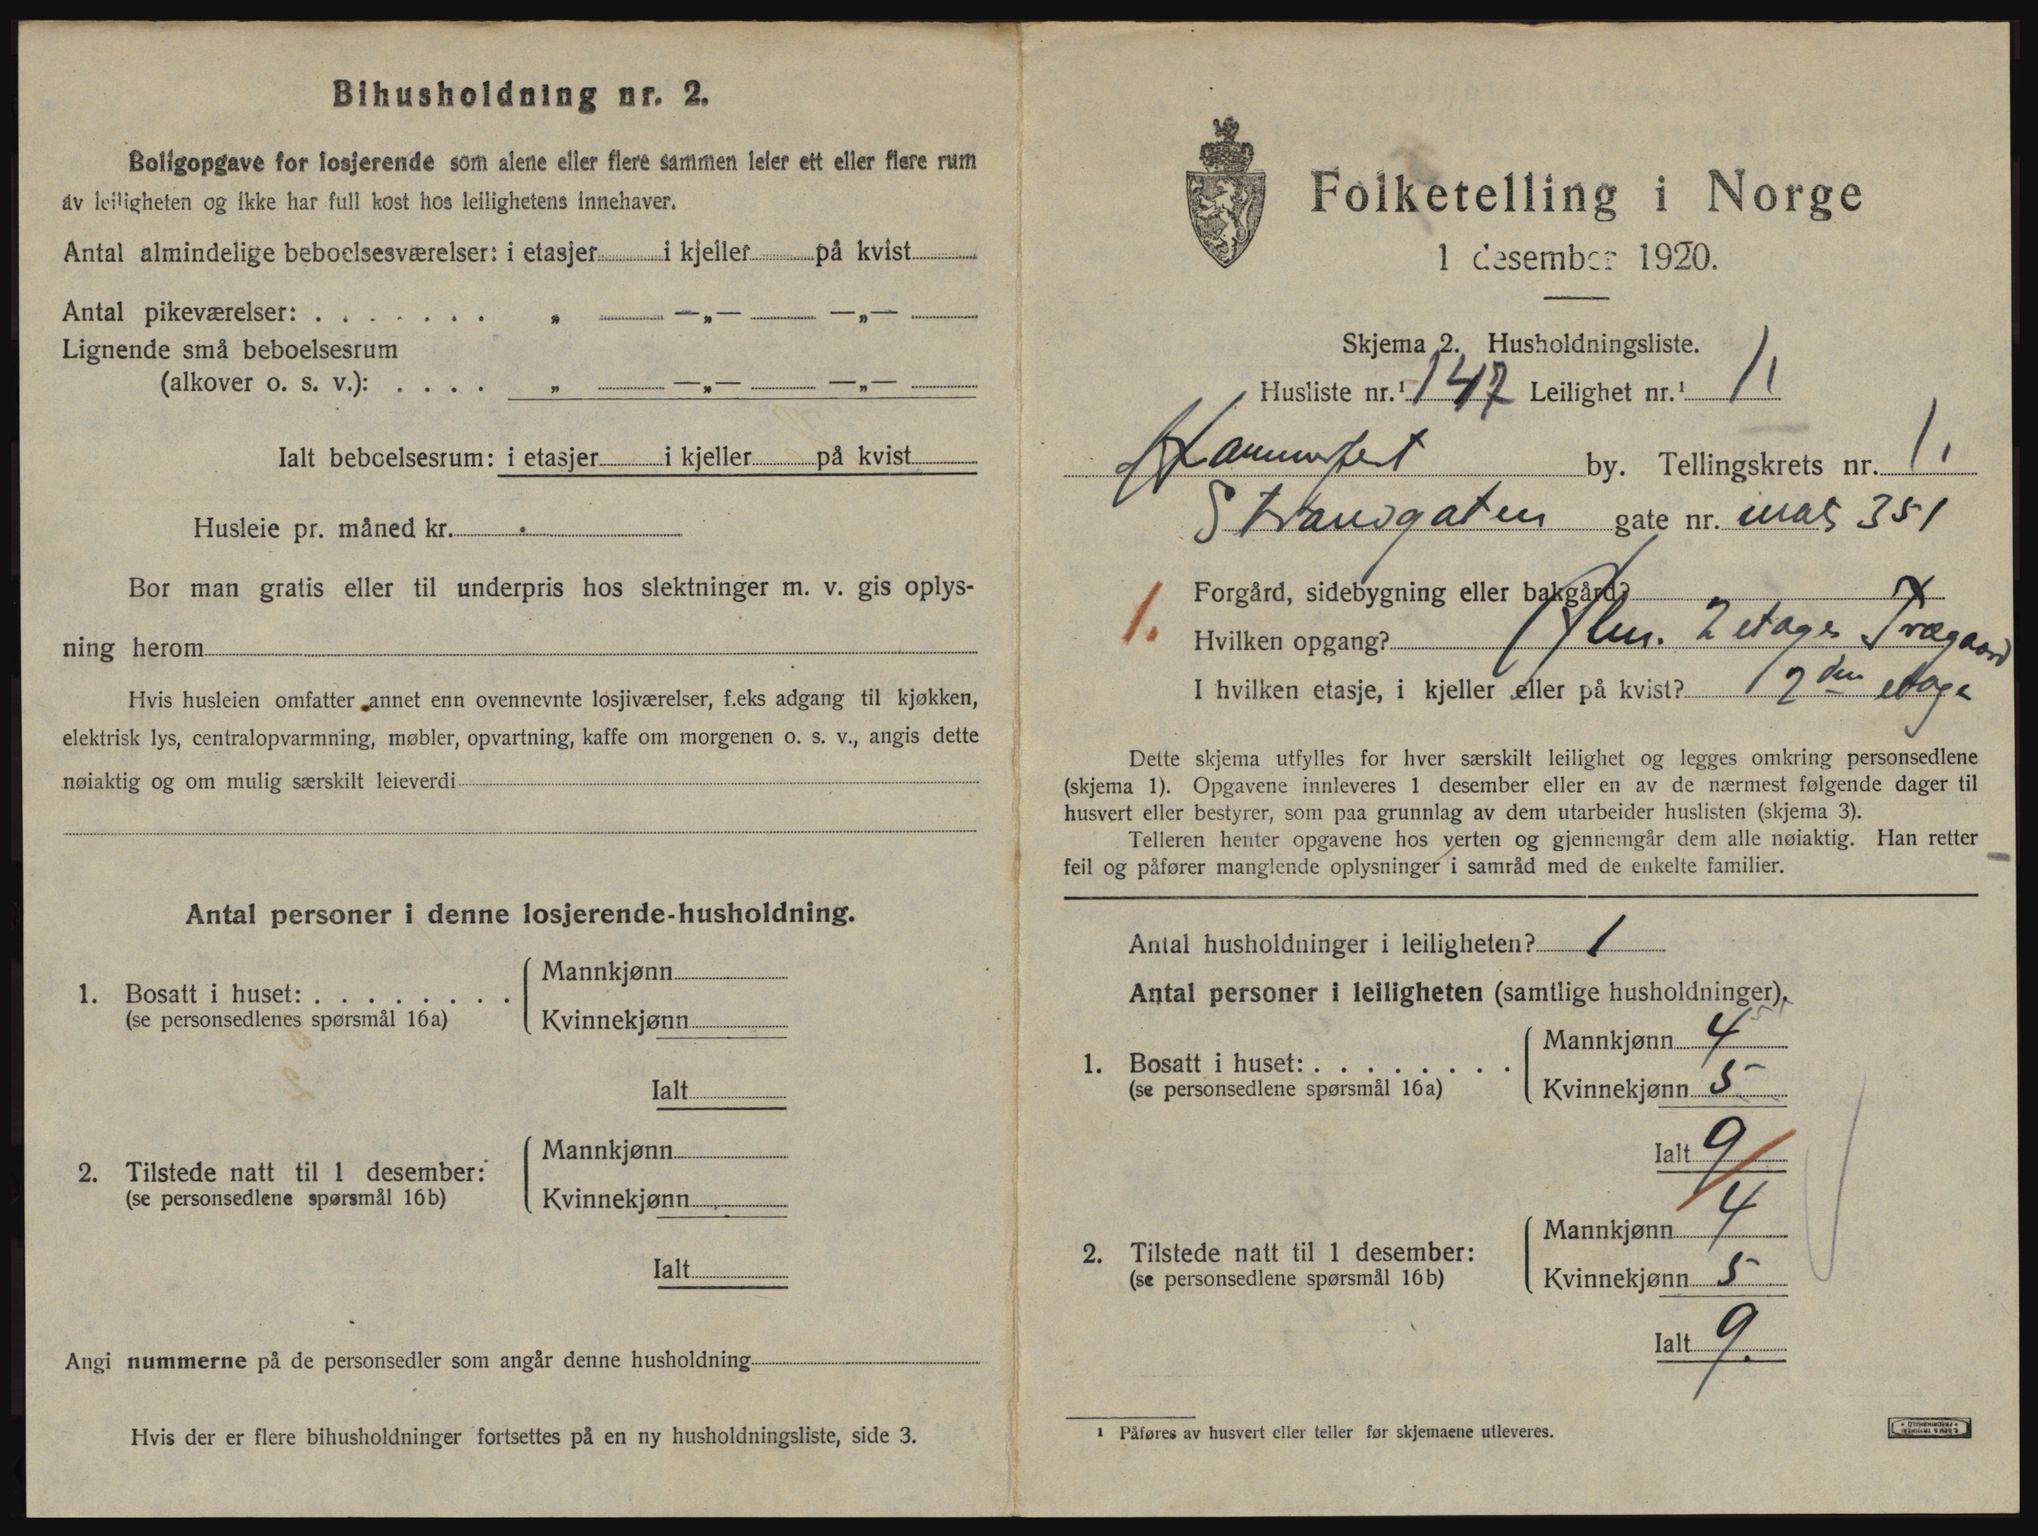 Bihusholdning nr. 2.
Boligopgave for losjerende som alene eller flere sammen leier ett eller flere rum
av leiligheten og ikke har full kost hos leilighetens innehaver.
Antal almindelige beboelsesværelser: i etasjer i kjeller på kvist
Antal pikeværelser: . . . . . . . „ —„— —„—
Lignende små beboelsesrum
(alkover o. s. v.): . . . . „ —„— —„—
Ialt beboelsesrum: i etasjer i kjeller på kvist
Husleie pr. måned kr.
Bor man gratis eller til underpris hos slektninger m. v. gis oplys-
ning herom
Hvis husleien omfatter annet enn ovennevnte losjiværelser, f.eks adgang til kjøkken,
elektrisk lys, centralopvarmning, møbler, opvartning, kaffe om morgenen o. s. v., angis dette
nøiaktig og om mulig særskilt leieverdi
Antal personer i denne losjerende-husholdning.
1. Bosatt i huset: . . . . . . . .
(se personsedlenes spørsmål 16a)
Mannkjønn
Kvinnekjønn
Ialt
2. Tilstede natt til 1 desember:
(se personsedlene spørsmål 16b)
Mannkjønn
Kvinnekjønn
Ialt
Angi nummerne på de personsedler som angår denne husholdning
Hvis der er flere bihusholdninger fortsettes på en ny husholdningsliste, side 3.
Folketelling i Norge
1 desember 1920.
Skjema 2. Husholdningsliste.
Husliste nr.¹ 147 Leilighet nr.¹ 1.
Hammerfest by. Tellingskrets nr. 1.
Strandgaten gate nr. 351
1. Forgård, sidebygning eller bakgård?
Hvilken opgang? 2 etages Trægaard
I hvilken etasje, i kjeller eller på kvist? 2den etage
Dette skjema utfylles for hver særskilt leilighet og legges omkring personsedlene
(skjema 1). Opgavene innleveres 1 desember eller en av de nærmest følgende dager til
husvert eller bestyrer, som paa grunnlag av dem utarbeider huslisten (skjema 3).
Telleren henter opgavene hos verten og gjennemgår dem alle nøiaktig. Han retter
feil og påfører manglende oplysninger i samråd med de enkelte familier.
Antal husholdninger i leiligheten? 1
Antal personer i leiligheten (samtlige husholdninger).
1. Bosatt i huset: . . . . . . . .
(se personsedlene spørsmål 16a)
Mannkjønn 4
Kvinnekjønn 5
Ialt 9
2. Tilstede natt til 1 desember:
(se personsedlene spørsmål 16b)
Mannkjønn 4
Kvinnekjønn 5
Ialt 9.
¹ Påføres av husvert eller teller før skjemaene utleveres.